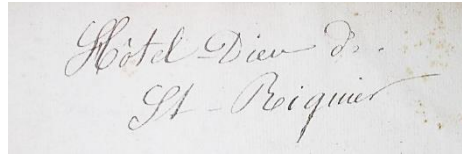 Hôtel-Dieu de
St-Riquier